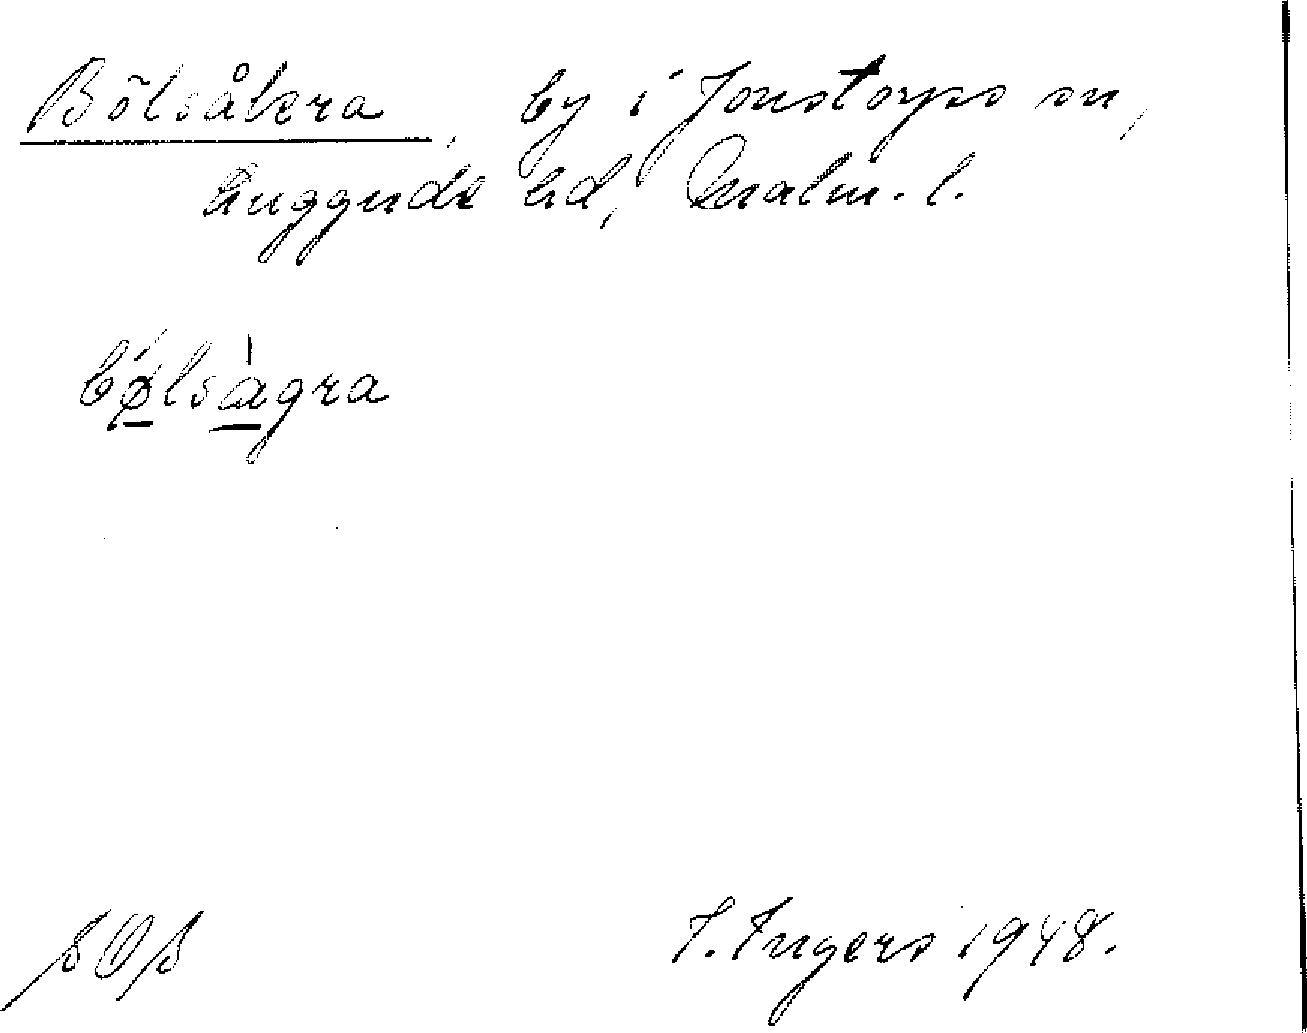 Bölsåkra, by i Jonstorps sn,
Luggude hd, Malm. l.
bø̲lsa̲gra
SOS
I. Ingers 1948.